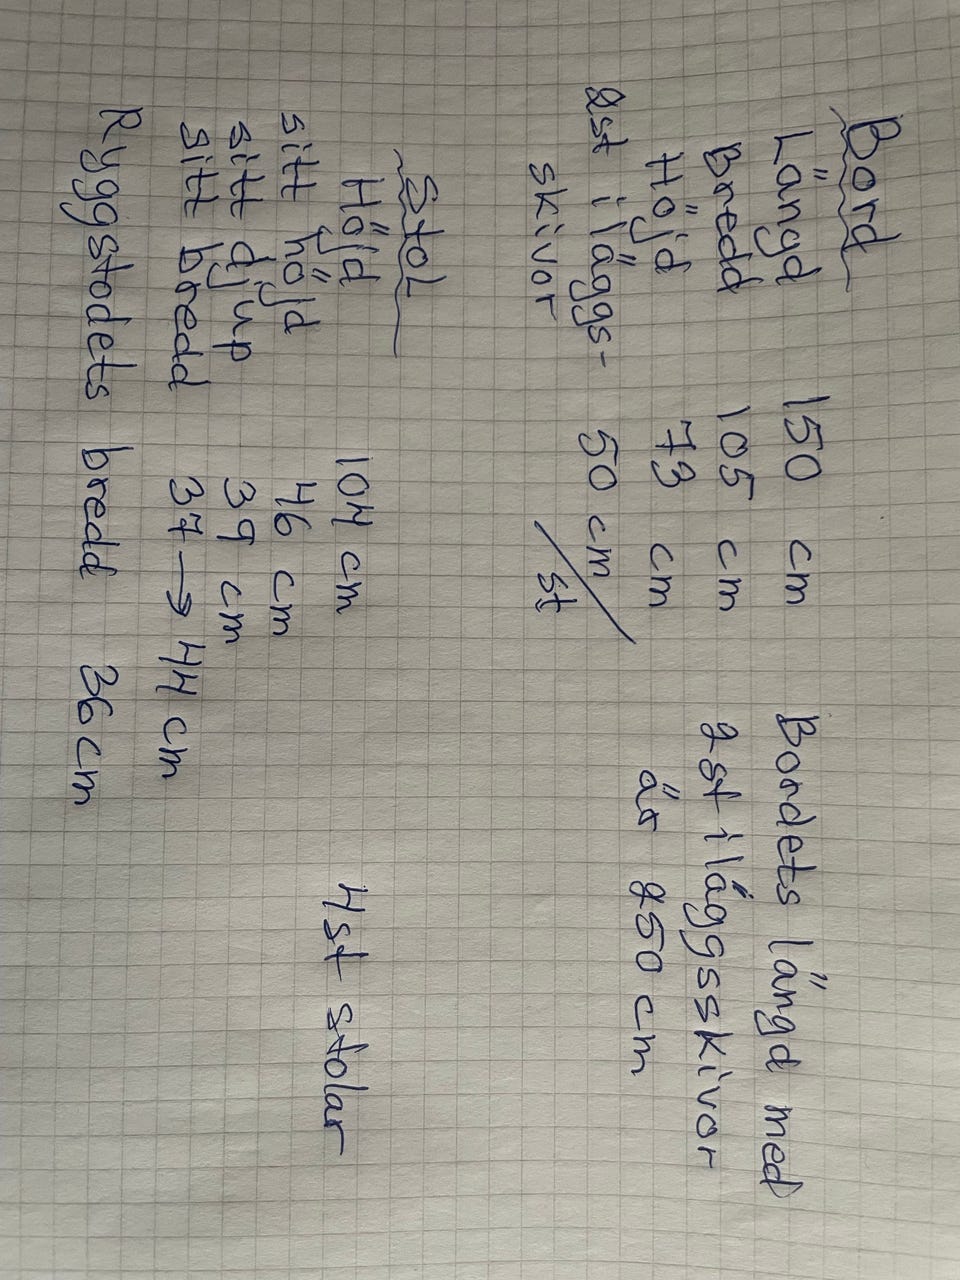 Bord
Längd 150 cm
Bredd 105 cm
Höjd 73 cm
2st iläggs- 50 cm / st
skivor
Bordets längd med
2st iläggsskivor
är 250 cm
Stol
Höjd 104 cm
sitt höjd 46 cm
sitt djup 39 cm
sitt bredd 37 → 44 cm
Ryggstodets bredd 36 cm
4st stolar